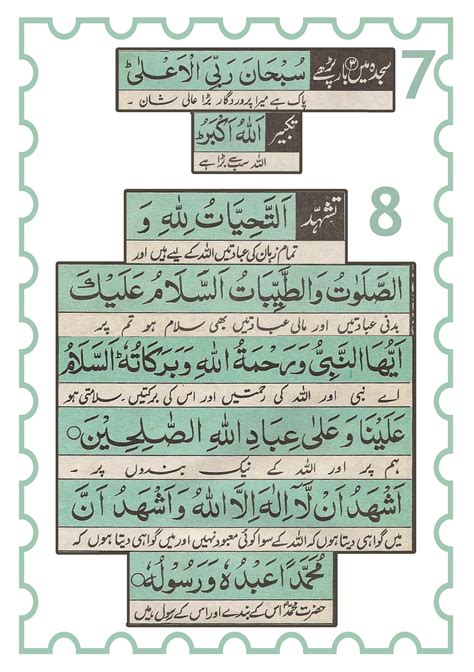 7
سجدہ میں ۳ بار پڑھے سُبْحَانَ رَبِّیَ الْاَعْلٰی
پاک ہے میرا پروردگار بڑا عالی شان ۔
تکبیر اَللهُ اَکْبَرُ
اللہ سب سے بڑا ہے
8
تشہّد اَلتَّحِیَّاتُ لِلّٰهِ وَ
تمام زبان کی عبادتیں اللہ کے لیے ہیں اور
الصَّلَوٰتُ وَالطَّیِّبَاتُ اَلسَّلَامُ عَلَیْكَ
بدنی عبادتیں اور مالی عبادتیں بھی سلام ہو تم پر
اَیُّهَا النَّبِیُّ وَرَحْمَةُ اللهِ وَبَرَکَاتُهٗ اَلسَّلَامُ
اے نبی اور اللہ کی رحمتیں اور اس کی برکتیں ۔ سلامتی ہو
عَلَیْنَا وَعَلٰی عِبَادِ اللهِ الصَّالِحِیْنَ○
ہم پر اور اللہ کے نیک بندوں پر ۔
اَشْهَدُ اَنْ لَّآ اِلٰهَ اِلَّا اللهُ وَ اَشْهَدُ اَنَّ
میں گواہی دیتا ہوں کہ اللہ کے سوا کوئی معبود نہیں اور میں گواہی دیتا ہوں کہ
مُحَمَّدًا عَبْدُهٗ وَرَسُوْلُهٗ○
حضرت محمدؐ اس کے بندے اور اس کے رسول ہیں